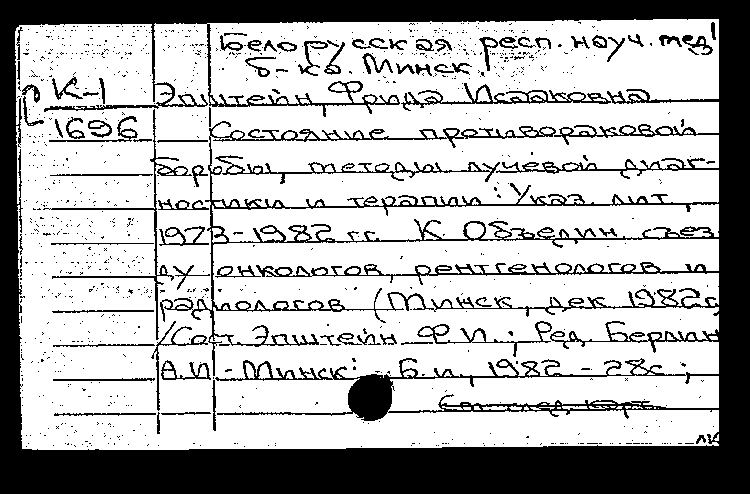 Белорусская респ. науч. мед
б-ка. Минск.
К-1 Эпштейн, Фрида Исааковна
1696 Состояние противораковой
борьбы, методы лучевой диаг-
ностики и терапии: Указ. лит,
1973-1982 гг. К Объедин. съез
ду онкологов, рентгенологов и
радиологов (Минск, дек 1982г
/Сост. Эпштейн Ф.И.; Ред. Берман
А.И - Минск: Б.и., 1982 - 28с;
См след. карт.